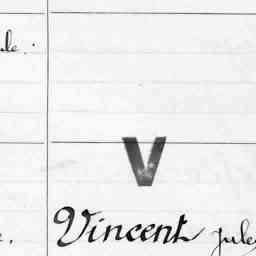 le.
V
Vincent Jules